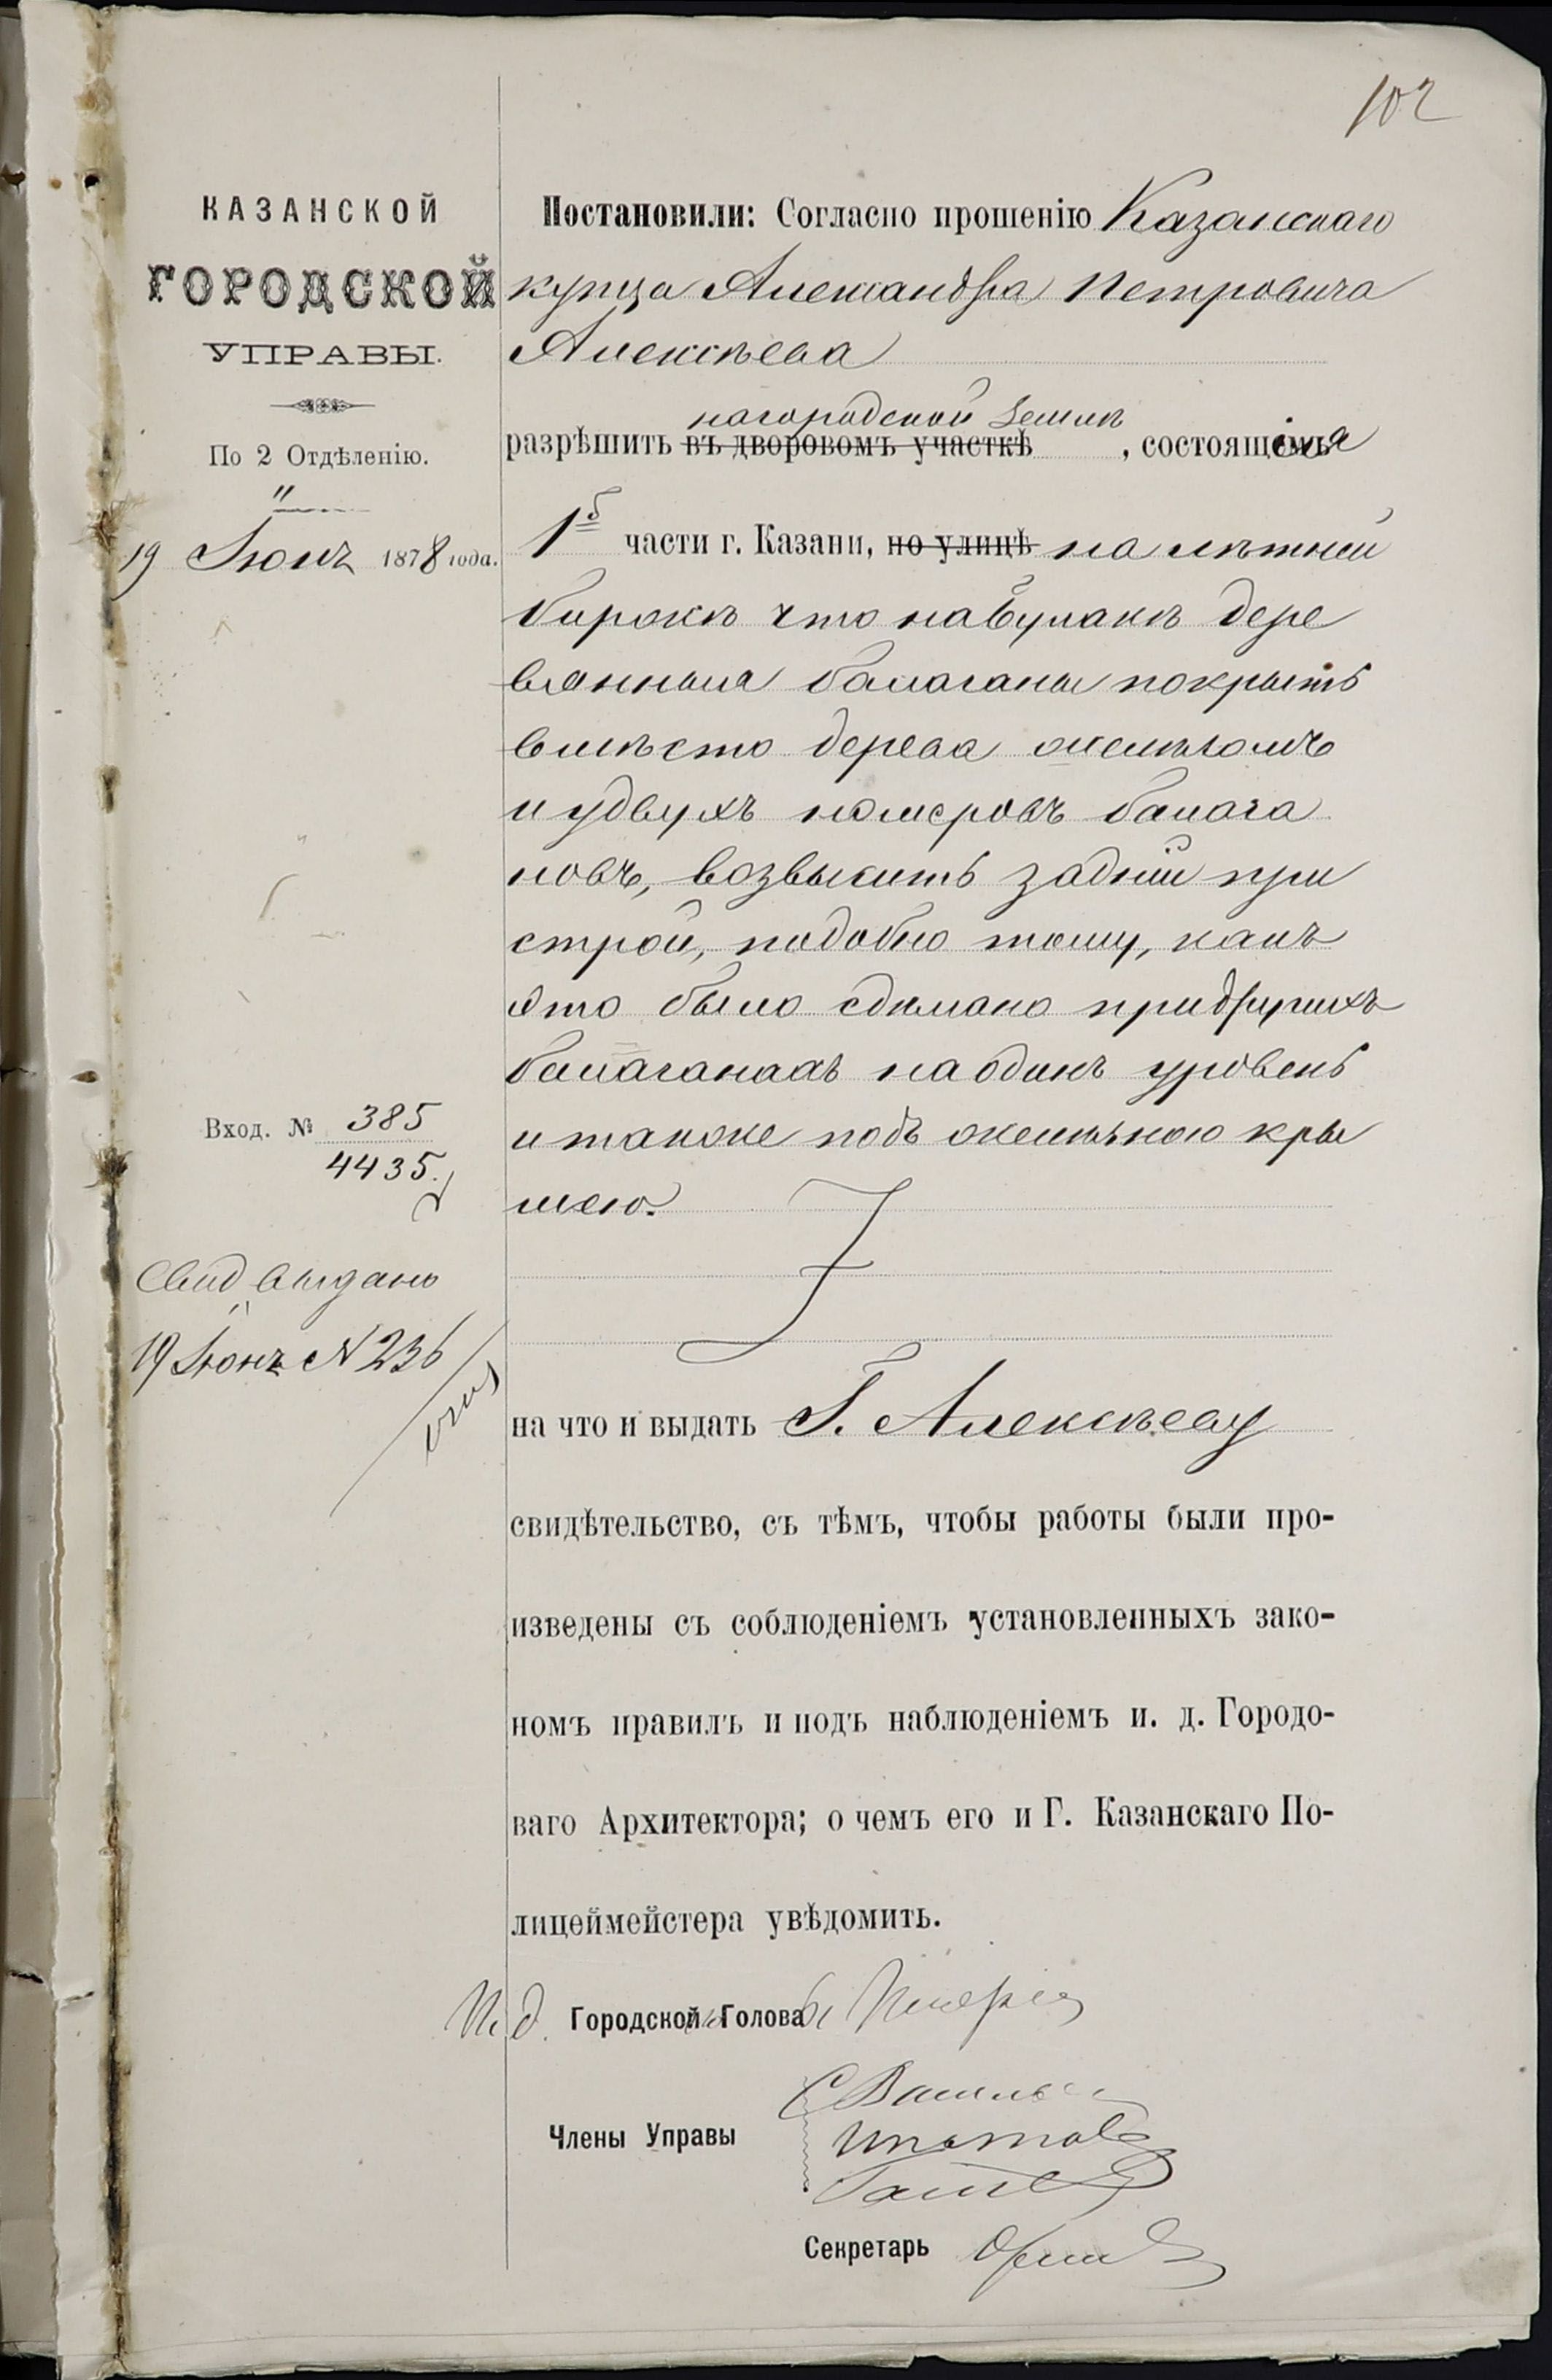 102
КАЗАНСКОЙ
ГОРОДСКОЙ
УПРАВЫ.
По 2 Отдѣленію.
"
19 Іюня 1878 года.
Вход. № 385
4435.
Свид. выдано
19 Іюня № 236
Постановили: Согласно прошенію Казанскаго
купца Александра Петровича
Алексѣева
на городской землѣ
разрѣшить въ дворовомъ участкѣ , состоящія
1й части г. Казани, по улицѣ на лѣтней
биржѣ что на булакѣ дере
вянныя балаганы покрыть
вмѣсто дерева желѣзомъ
и у двухъ номеровъ балага
новъ, возвысить задній при
строй, подобно тому, какъ
это было сдѣлано при другихъ
балаганахъ на одинъ уровень
и также подъ желѣзною кры
шею.
на что и выдать Г. Алексѣеву
свидѣтельство, съ тѣмъ, чтобы работы были про-
изведены съ соблюденіемъ установленныхъ зако-
номъ правилъ и подъ наблюденіемъ и. д. Городо-
ваго Архитектора; о чемъ его и Г. Казанскаго По-
лицеймейстера увѣдомить.
И. д. Городской Голова
Члены Управы
Секретарь